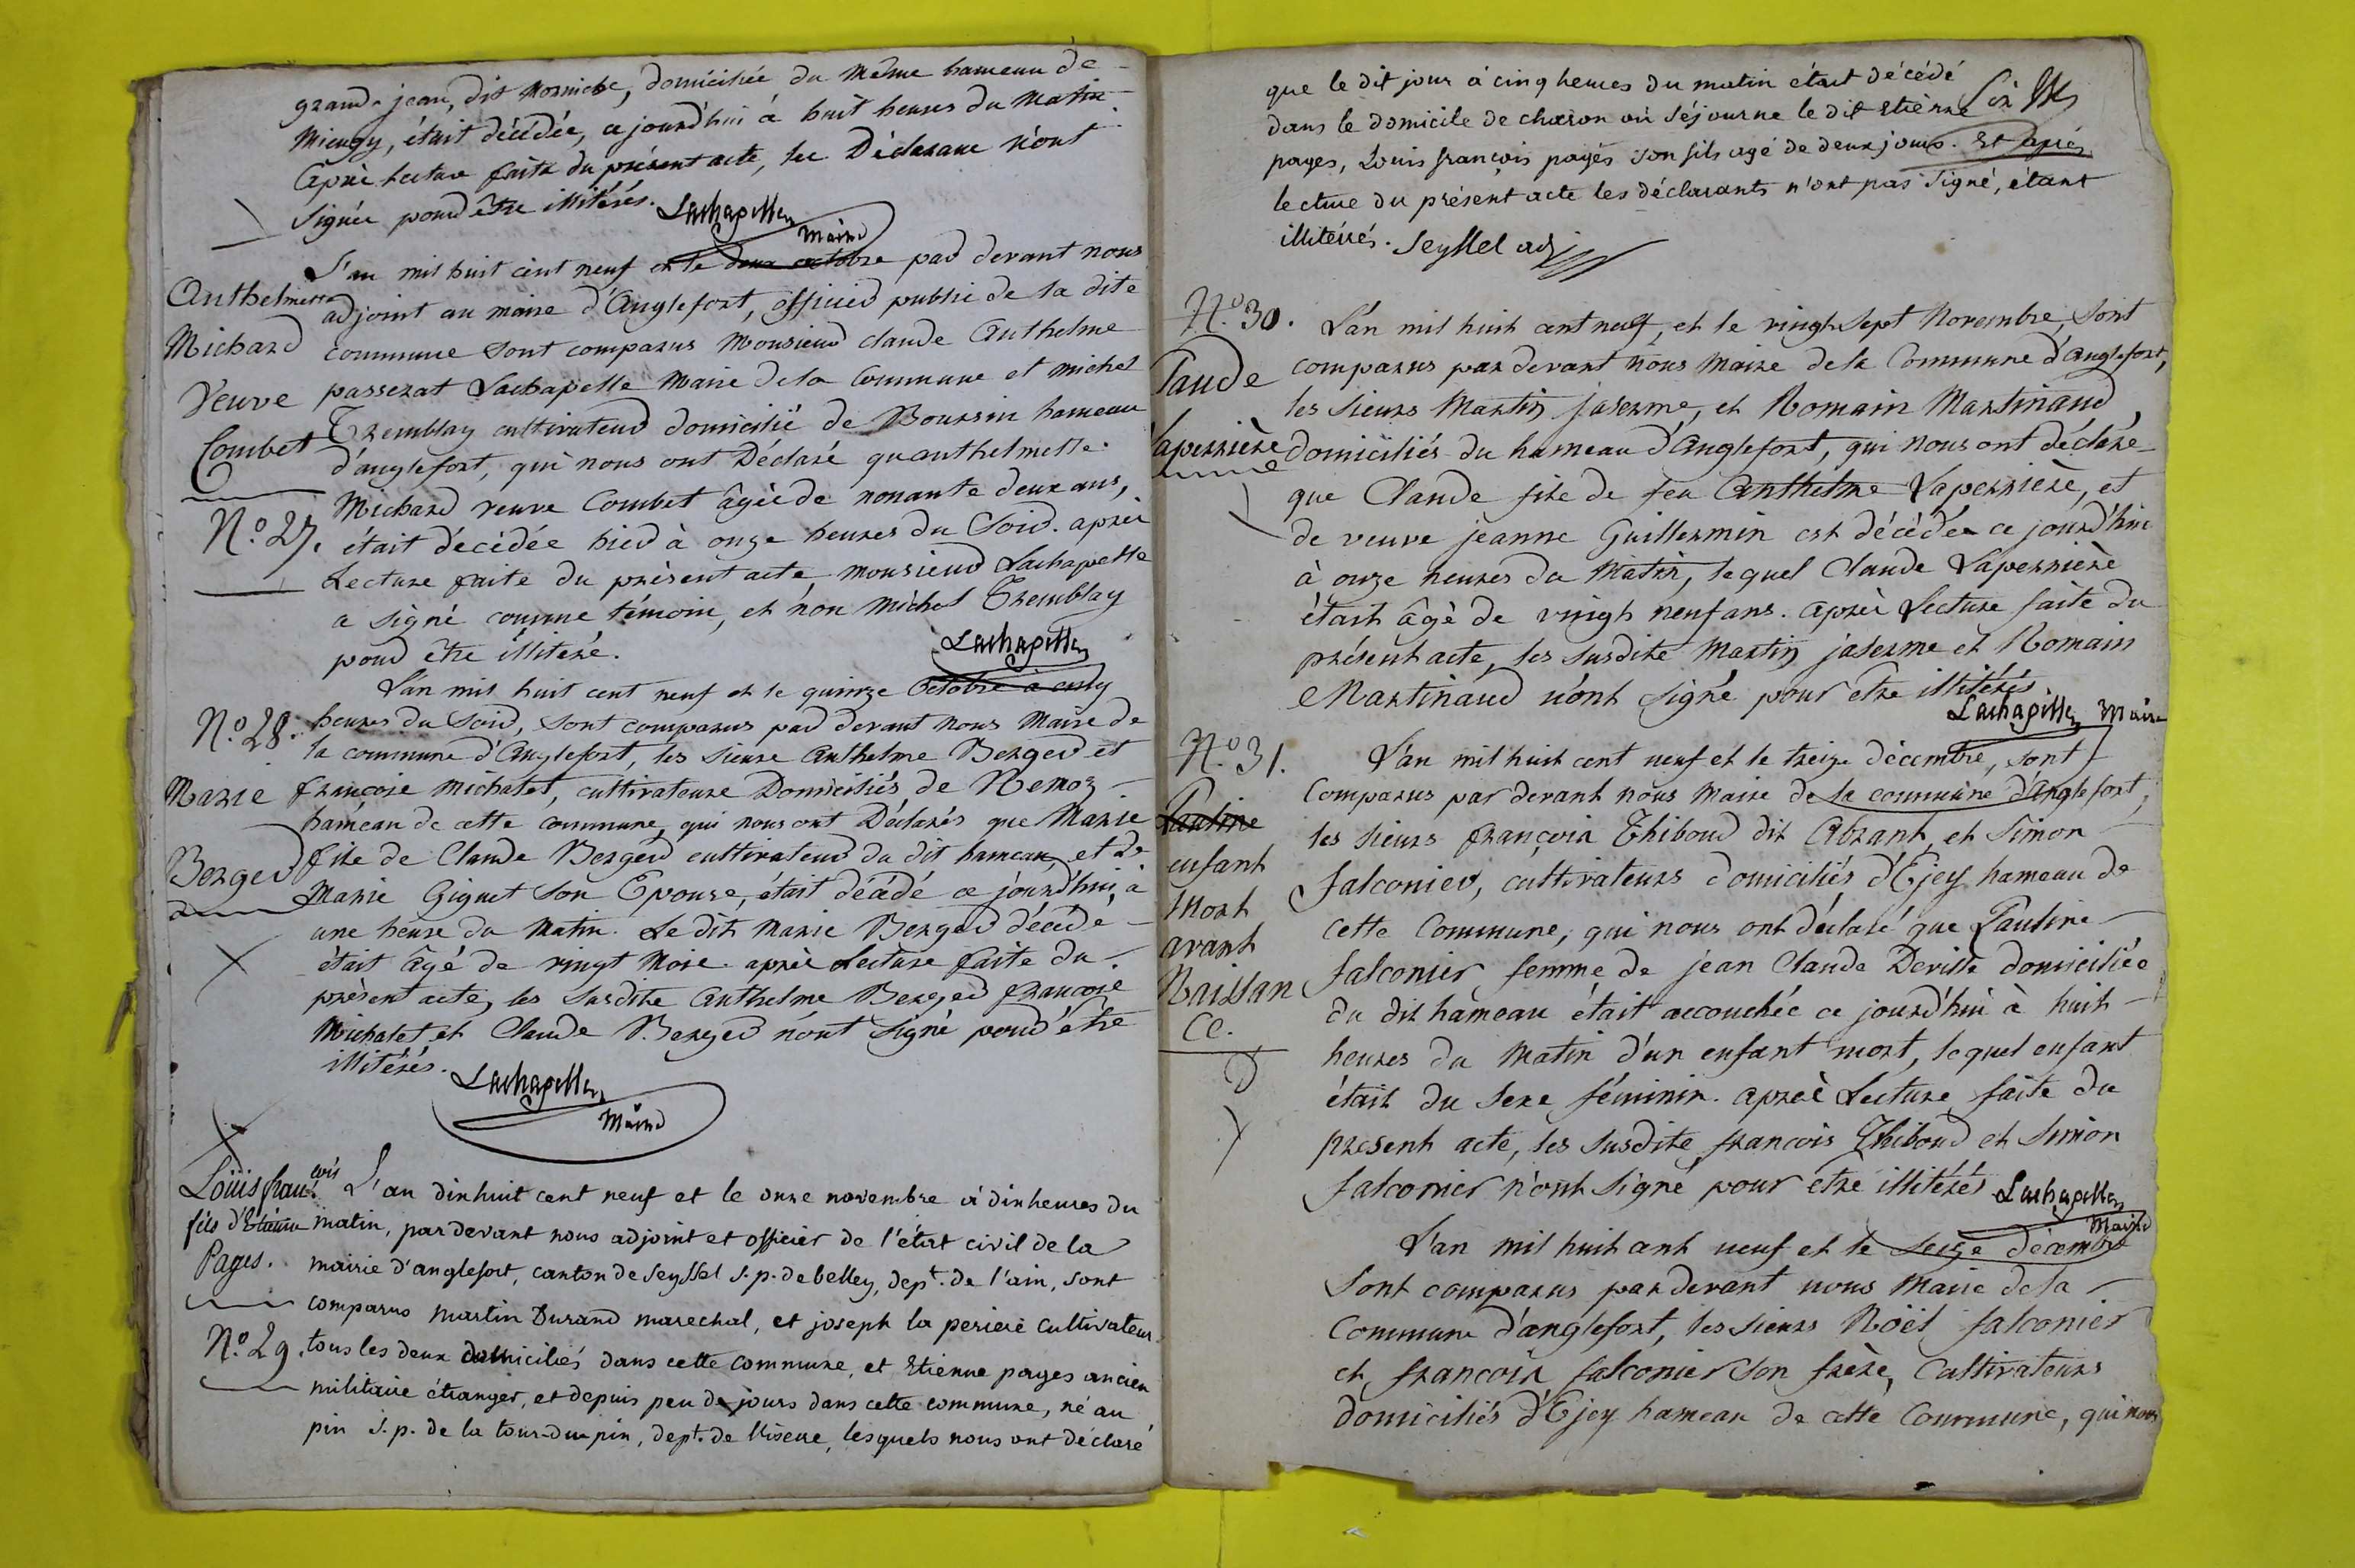 grand-jean, dit Morniche, domiciliée du même hameau de
Mieugy, était décédée, ce jourd'hui à huit heures du Matin.
Après lecture faite du présent acte, les Déclarans n'ont
Signée pour être illitérés. Lachapelle
Maire
L'an mil huit cent neuf et le deux octobre par devant nous
Anthelmette adjoint au maire d'Anglefort, officier public de la dite
Michard commune sont comparus Monsieur claude Anthelme
Veuve passerat Lachapelle Maire de la Commune et michel
Combet Tremblay cultivateur domicilié de Boursin hameau
d'anglefort, qui nous ont Déclaré qu'anthelmette
Michard veuve Combet âgée de nonante deux ans,
N.º 27. était décédée hier à onze heures du Soir. après
Lecture faite du présent acte, Monsieur Lachapelle
a signé comme témoin, et non Michel Tremblay
pour etre illitéré. Lachapelle
L'an mil huit cent neuf et le quinze Octobre a
N.º 28. heures du Soir, sont comparus par devant nous Maire de
la commune d'Anglefort, les Sieurs Anthelme Berger et
Marie françois Michalet, cultivateurs Domiciliés de Remoz
hameau de cette commune, qui nous ont Déclarés que Marie
Berger file de Claude Berger cultivateur du dit hameau, et de
Marie Giguet Son Epouse, était décédé ce jourd'hui, à
une heure du Matin. Le dit Marie Berger décédé
était âgé de vingt Mois. après Lecture faite du
présent acte, les Susdits Anthelme Berger françois
Michalet et Claude Berger n'ont Signé pour être
illitérés. Lachapelle
Maire
Loüis fran.çois L'an dixhuit cent neuf et le onze novembre à dix heures du
fils d'Etienne matin, pardevant nous adjoint et officier de l'état civil de la
Pages. mairie d'anglefort, canton de Seyssel S.p. de belley, dep.t de l'ain, sont
comparus martin Durand marechal, et joseph la perierè cultivateur
N.º 29. tous les deux domiciliés dans cette commune, et Etienne pages ancien
militaire étranger, et depuis peu de jours dans cette commune, né au
pin S.p. de la tour-du-pin, dept. de l'isere, lesquels nous ont déclaré
que le dit jour à cinq heures du matin était décédé
dans le domicile de charon où séjourne le dit Etienne
pages, Louis françois pagès son fils agé de deux jours. Et après
lecture du présent acte les déclarants n'ont pas Signé, étant
illitérés. Seyssel adj
N.º 30. L'an mil huit cent neuf, et le vingt Sept Novembre, Sont
comparus par devant nous Maire de la Commune d'Anglefort,
Claude les Sieurs Martin jaserme, et Romain Martinaud,
Laperrière domiciliés du hameau d'Anglefort, qui nous ont déclaré
que Claude fils de feu Anthelme Laperrière, et
de veuve jeanne Guillermin est décédée ce jourd'hui
à onze heures du Matin, lequel Claude Laperrière
était âgé de vingt neuf ans. après Lecture faite du
présent acte, les Susdits Martin jaserme et Romain
Martinaud n'ont Signé pour etre illitérés.
Lachapelle Maire
N.º 31. L'an mil huit cent neuf et le treize décembre, sont
Comparus par devant nous Maire de la commune d'Anglefort,
Pauline les Sieurs françois Thiboud dit Abrant, et Simon
enfant falconier, cultivateurs domiciliés d'Ejey hameau de
Mort cette Commune, qui nous ont déclaré que Pauline
avant falconier femme de jean Claude Deville domiciliée
Naissan du dit hameau était accouchée ce jourd'hui à huit
ce. heures du Matin d'un enfant mort, lequel enfant
était du Sexe féminin. après Lecture faite du
present acte, les Susdits françois Thiboud et Simon
falconier n'ont Signé pour etre illitérés Lachapelle
Maire
L'an mil huit cent neuf et le Seize décembre
Sont comparus par devant nous Maire de la
Commune d'anglefort, les Sieurs Noël falconier
et françois falconier Son frère, Cultivateurs
domiciliés d'Ejey hameau de cette Commune, qui nous